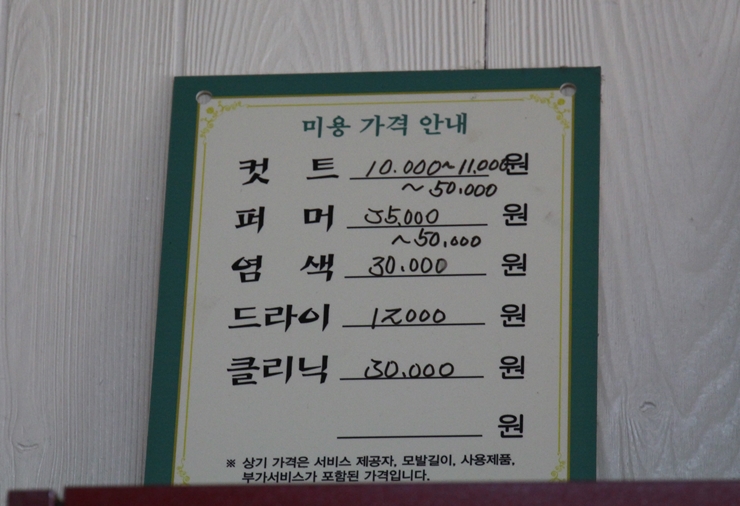 미용 가격 안내
컷 트 10.000~11.000원
~50.000
퍼 머 35.000 원
~50.000
염 색 30.000 원
드라이 12000 원
클리닉 30.000 원
원
※ 상기 가격은 서비스 제공자, 모발길이, 사용제품,
부가서비스가 포함된 가격입니다.